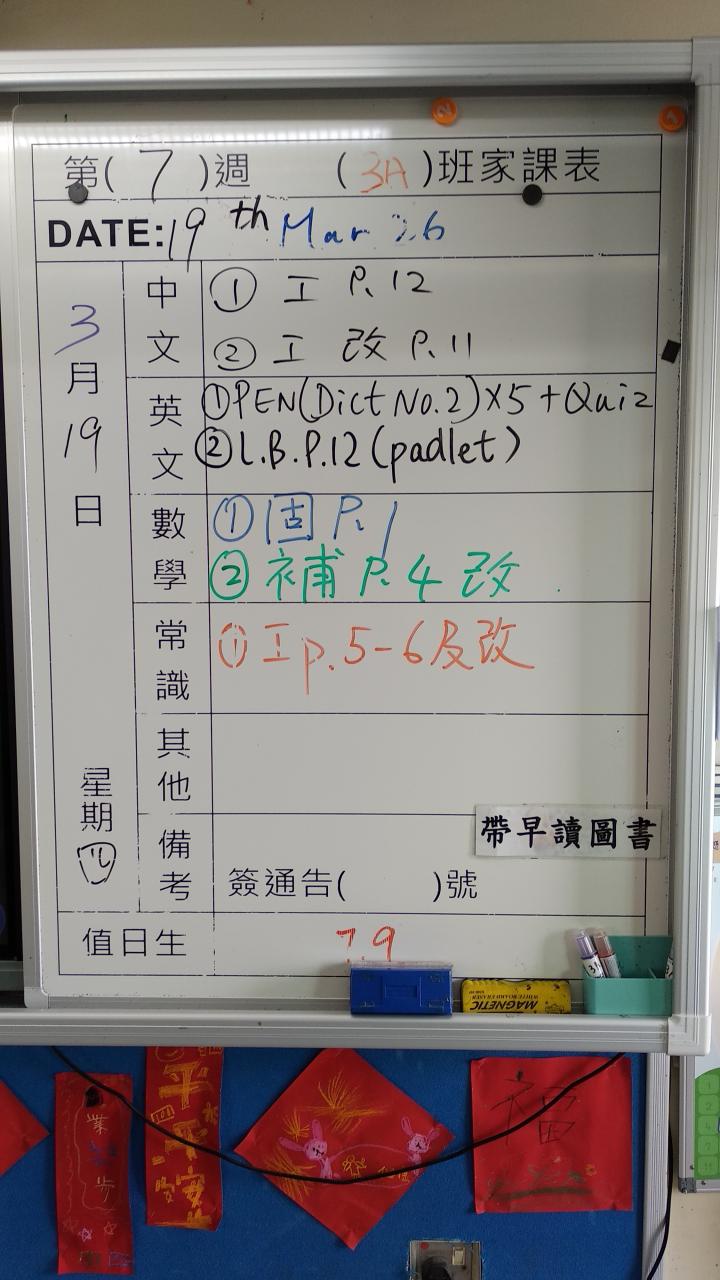 第( 7 )週 ( 3A )班家課表
DATE: 19th Mar 26
3月19日
星期四
中文
① 工 P.12
② 工 改 P.11
英文
①PEN(Dict No.2)×5+Quiz
②L.B.P.12(padlet)
數學
①固 P.1
②補 P.4 改
常識
①工p.5-6及改
其他
備考
帶早讀圖書
簽通告( )號
值日生
7.9
MAGNETIC
WHITE BOARD ERASER
平平安安
福